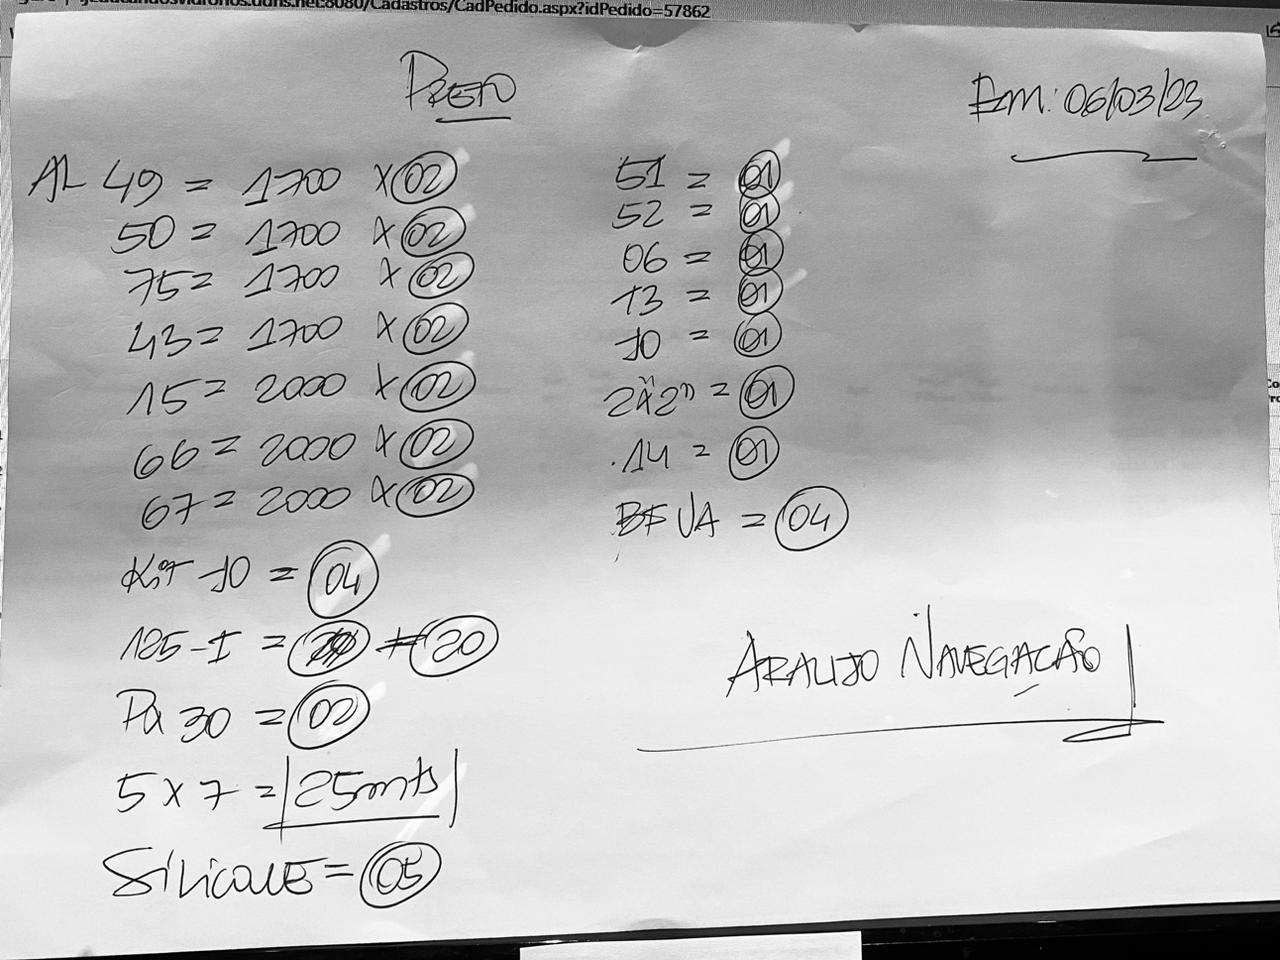 /Cadastros/CadPedido.aspx?idPedido=57862
PRETO
Em: 06/03/23
AL 49 = 1700 x 02
50 = 1700 x 02
75 = 1700 x 02
43 = 1700 x 02
15 = 2000 x 02
66 = 2000 x 02
67 = 2000 x 02
Kit 10 = 04
125-I = 20
Pa 30 = 02
5 x 7 = 25mts
SiLiCONE = 05
51 = 01
52 = 01
06 = 01
13 = 01
10 = 01
2"x2" = 01
.14 = 01
BF VA = 04
ARAUJO NAVEGAÇÃO